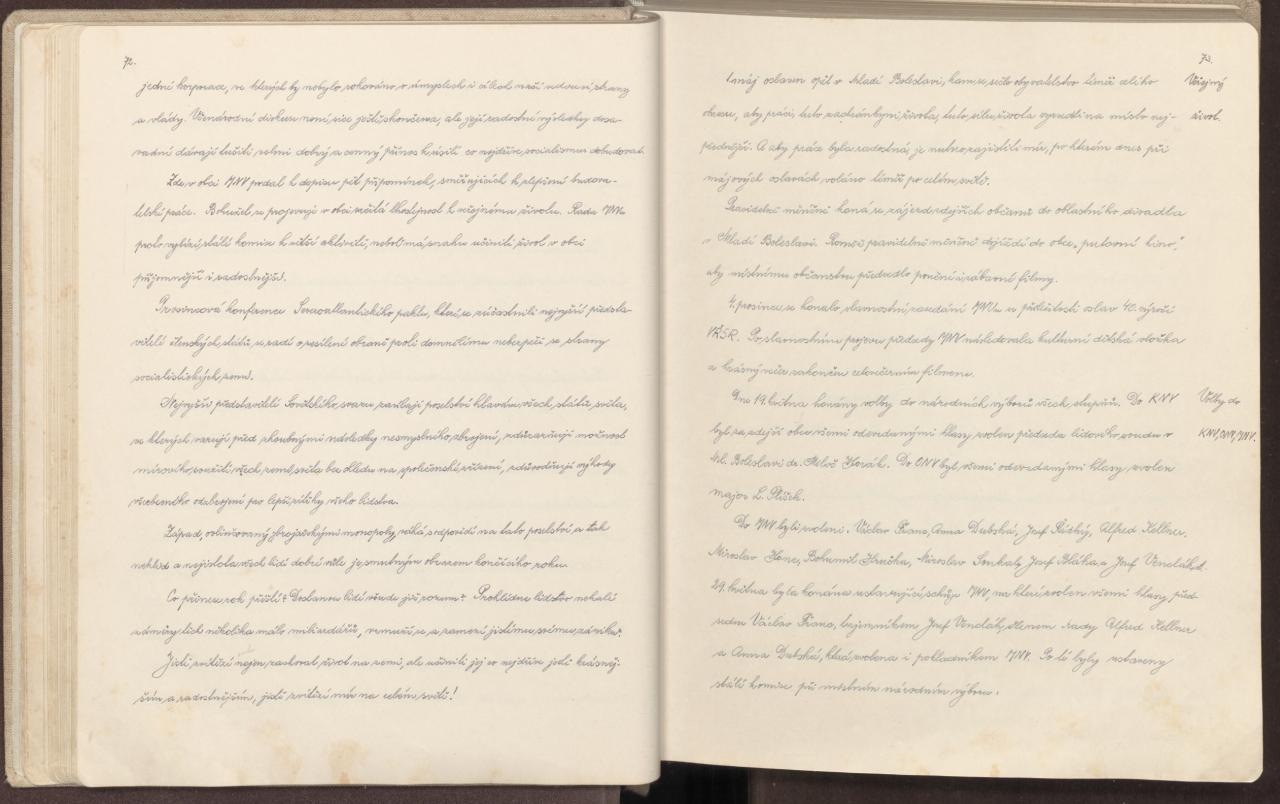 72.
jedné korporace, ve kterých by nebylo rokováno o úmyslech i cílech naší vedoucí strany
a vlády. Všendrodní diskuse není sice ještě skončena, ale její radostné výsledky dosa-
vadní dávají tušiti velmi dobrý a cenný přínos k úsilí co nejdříve socialismus dobudovat.
Zde v obci MNV podal k dopisu pět připomínek, směřujících k zlepšení budova-
telské práce. Bohužel se projevuje v obci určitá lhostejnost k veřejnému životu. Rada MNV
proto vybízí stálé komise k větší aktivitě, neboť má snahu učiniti život v obci
příjemnější i radostnější.
Prosincová konference Severoatlantického paktu, které se zúčastnili nejvyšší předsta-
vitelé členských států, se radí o zesílení obrany proti domnělému nebezpečí se strany
socialistických zemí.
Nejvyšší představitelé Sovětského svazu zasílají poselství hlavám všech států světa,
ve kterých varují před zhoubnými následky nesmyslného zbrojení, zdůrazňují možnost
mírového soužití všech zemí světa bez ohledu na společenské zřízení, zdůvodňují výhody
všeobecného odzbrojení pro lepší zítřky všeho lidstva.
Západ, ovlivňovaný zbrojařskými monopoly, váhá s odpovědí na tato poselství a tak
neklid a nejistota všech lidí dobré vůle je smutným obrazem končícího roku.
Co přinese rok příští? Dostanou lidé všude již rozum? Prohlédne lidstvo nekalé
záměry těch několika málo miliardářů, vzmuží se a zamezí jistému svému zániku?
Jistě zvítězí nejen zachovat život na zemi, ale učiniti jej co nejdříve ještě krásněj-
ším a radostnějším, jistě zvítězí mír na celém světě!
73.
Veřejný
život.
1. máj oslaven opět v Mladé Boleslavi, kam se sešlo obyvatelstvo téměř celého
okresu, aby práci, tuto zachránkyni života, tuto sílu života vyzvedli na místo nej-
přednější. A aby práce byla radostná, je nutno zajistiti mír, po kterém dnes při
májových oslavách voláno téměř po celém světě.
Pravidelně měsíčně koná se zájezd zdejších občanů do oblastního divadla
v Mladé Boleslavi. Rovněž pravidelně měsíčně dojíždí do obce „putovní kino“,
aby místnímu občanstvu předvedlo poučné i zábavné filmy.
7. prosince se konalo slavnostní zasedání MNV u příležitosti oslav 40. výročí
VŘSR. Po slavnostním projevu předsedy MNV následovala kulturní dětská vložka
a krásný večer zakončen celovečerním filmem.
Volby do
KNV, ONV, MNV.
Dne 19. května konány volby do národních výborů všech stupňů. Do KNV
byl za zdejší obec všemi odevzdanými hlasy zvolen předseda lidového soudu v
Ml. Boleslavi dr. Miloš Horák. Do ONV byl všemi odevzdanými hlasy zvolen
major L. Plíšek.
Do MNV byli zvoleni: Václav Frano, Anna Dubská, Josef Růžký, Alfred Kellner,
Miroslav Hanc, Bohumil Hruška, Miroslav Senkal, Josef Bláha, a Josef Vendlák st.
29. května byla konána ustavující schůze MNV, na které zvolen všemi hlasy před-
sedou Václav Frano, tajemníkem Josef Vendlák, členem rady Alfred Kellner
a Anna Dubská, která zvolena i pokladníkem MNV. Po té byly ustaveny
stálé komise při místním národním výboru.